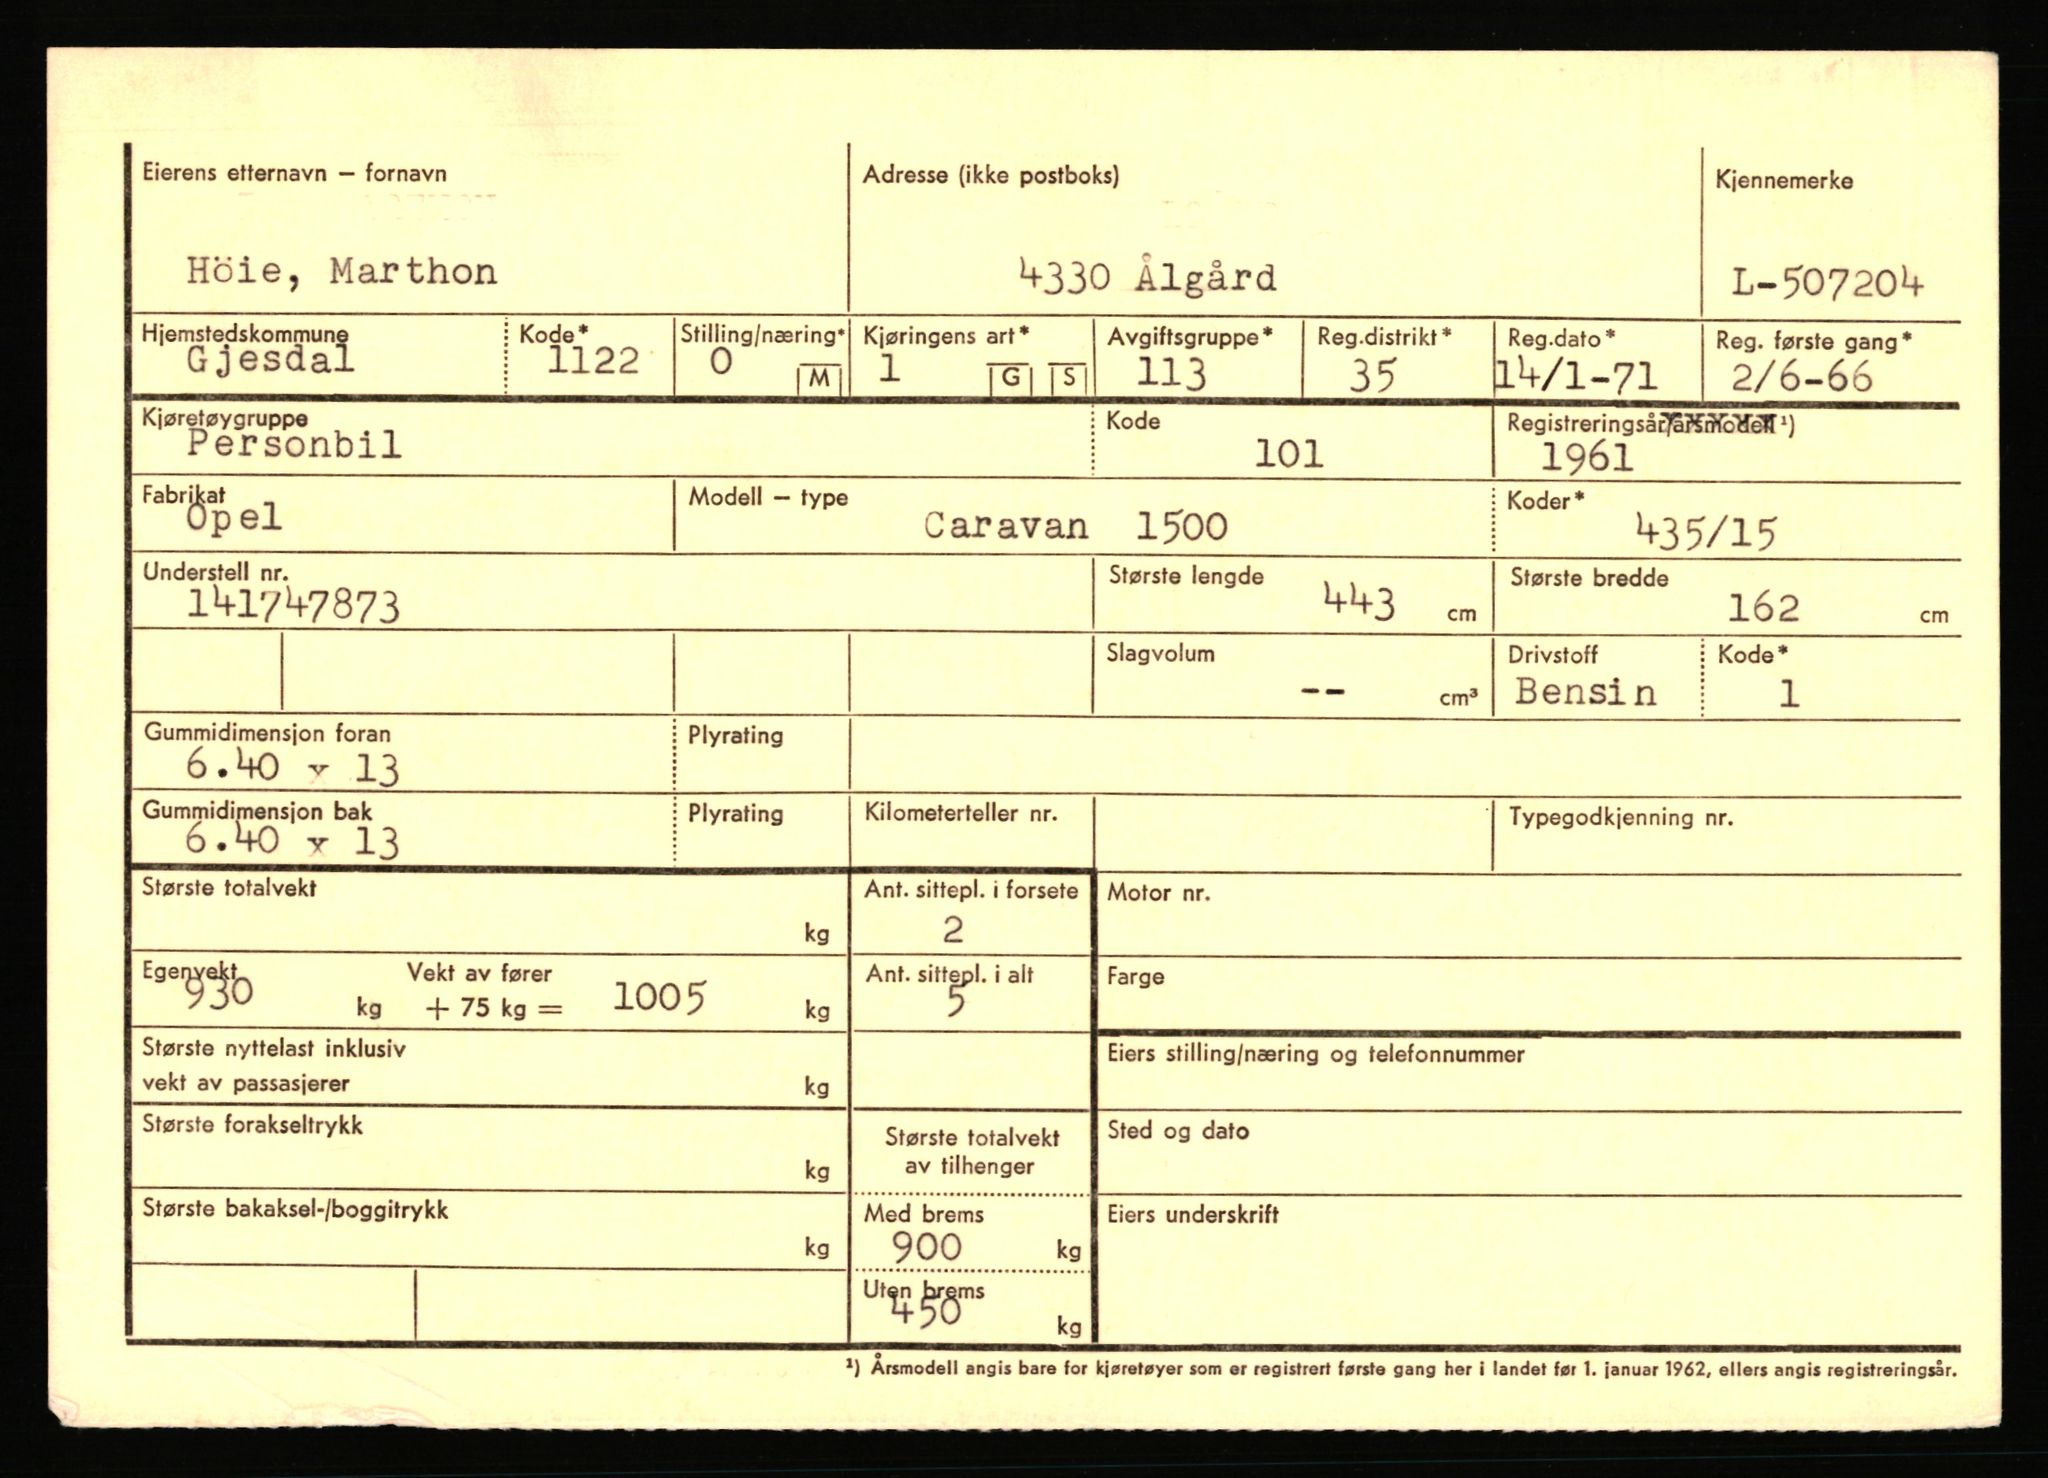 Eierens etternavn – fornavn Adresse (ikke postboks) Kjennemerke
Höie, Marthon 4330 Ålgård L-507204
Hjemstedskommune Kode* Stilling/næring* Kjøringens art* Avgiftsgruppe* Reg.distrikt* Reg.dato* Reg. første gang*
Gjesdal 1122 0 M 1 G S 113 35 14/1-71 2/6-66
Kjøretøygruppe Kode Registreringsår/årsmodell ¹)
Personbil 101 1961
Fabrikat Modell – type Koder*
Opel Caravan 1500 435/15
Understell nr. Største lengde Største bredde
141747873 443 cm 162 cm
Slagvolum Drivstoff Kode*
-- cm³ Bensin 1
Gummidimensjon foran Plyrating
6.40 x 13
Gummidimensjon bak Plyrating Kilometerteller nr. Typegodkjenning nr.
6.40 x 13
Største totalvekt Ant. sittepl. i forsete Motor nr.
kg 2
Egenvekt Vekt av fører Ant. sittepl. i alt Farge
930 kg + 75 kg = 1005 kg 5
Største nyttelast inklusiv Eiers stilling/næring og telefonnummer
vekt av passasjerer kg
Største forakseltrykk Største totalvekt Sted og dato
kg av tilhenger
Største bakaksel-/boggitrykk Med brems Eiers underskrift
kg 900 kg
Uten brems
450 kg
¹) Årsmodell angis bare for kjøretøyer som er registrert første gang her i landet før 1. januar 1962, ellers angis registreringsår.